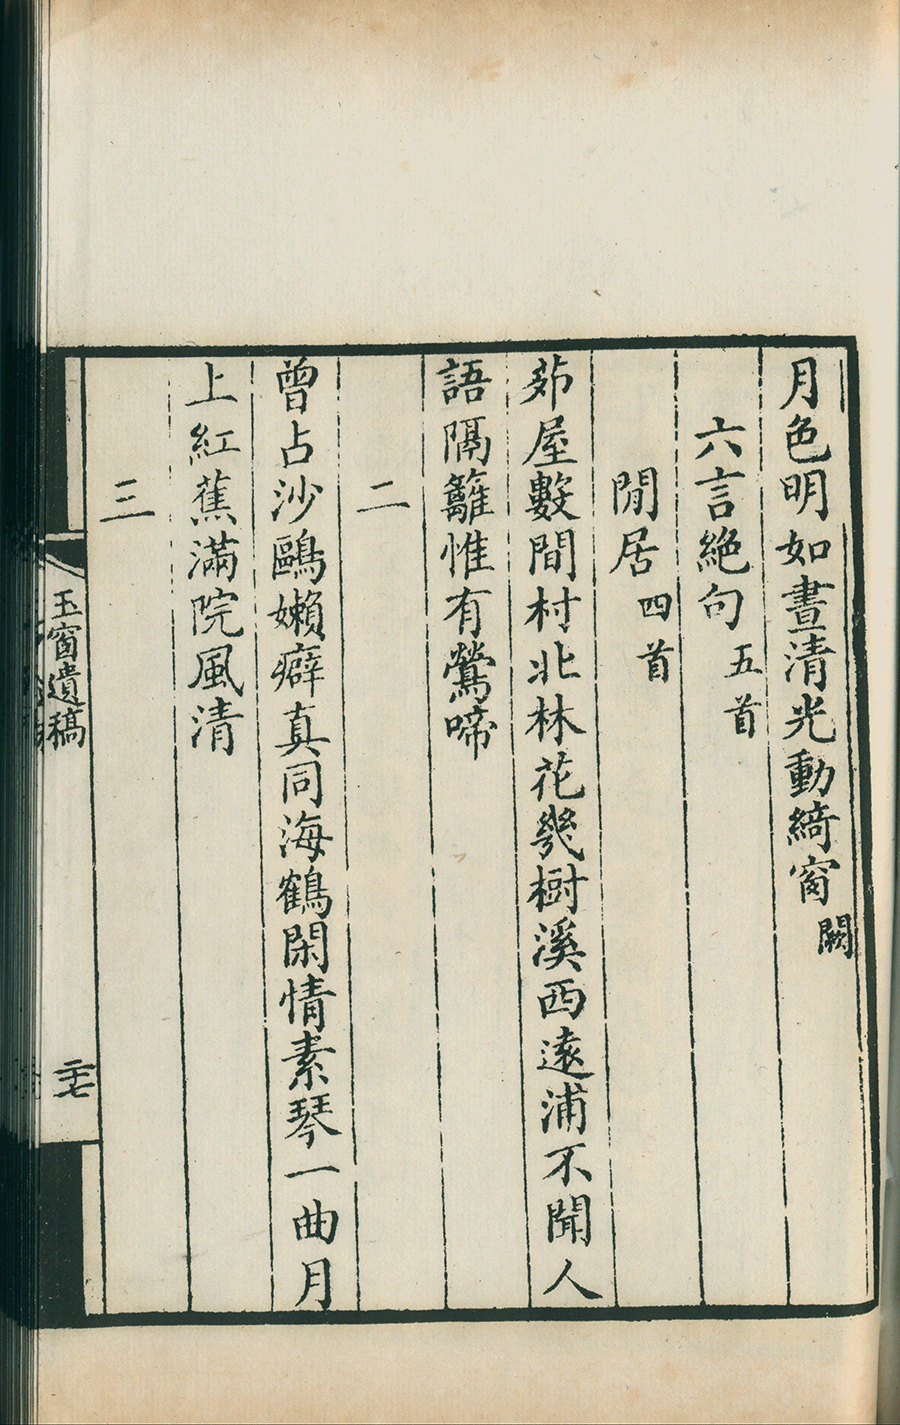 月色明如晝清光動綺窗闕
六言絶句五首
閒居四首
茆屋數間村北林花幾樹溪西遠浦不聞人
語隔籬惟有鶯啼
二
曾占沙鷗嬾癖真同海鶴閑情素琴一曲月
上紅蕉滿院風清
三
玉窗遺稿
二十七